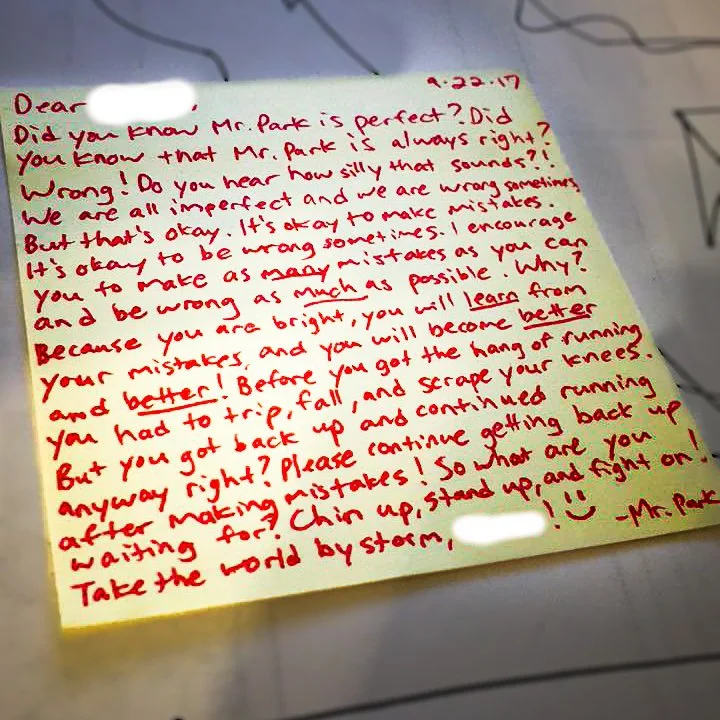 9.22.17
Dear ,
Did you know Mr. Park is perfect? Did
you know that Mr. Park is always right?
Wrong! Do you hear how silly that sounds?!
We are all imperfect and we are wrong sometimes
But that's okay. It's okay to make mistakes.
It's okay to be wrong sometimes. I encourage
you to make as many mistakes as you can
and be wrong as much as possible. Why?
Because you are bright, you will learn from
your mistakes, and you will become better
and better! Before you got the hang of running
you had to trip, fall, and scrape your knees.
But you got back up and continued running
anyway right? Please continue getting back up
after making mistakes! So what are you
waiting for? Chin up, stand up, and fight on!
Take the world by storm, ! :) -Mr. Park